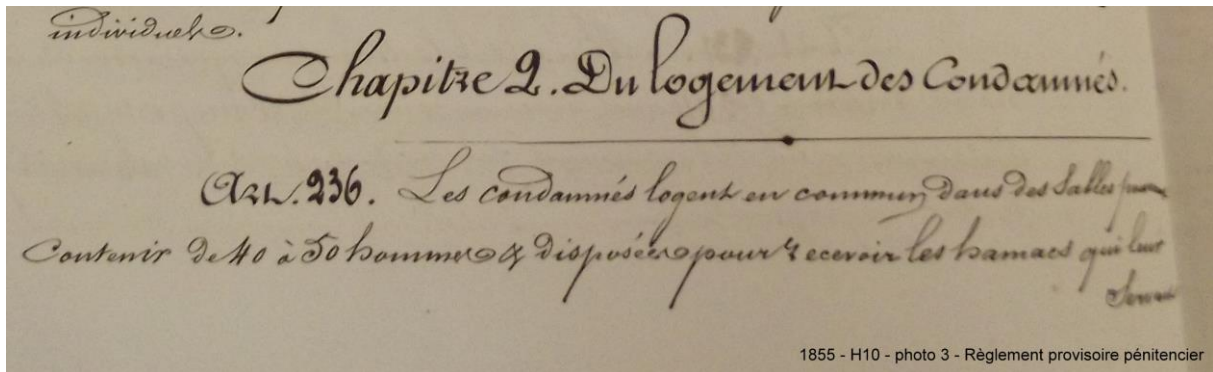 individuels.
Chapitre 2. Du logement des Condamnés.
Art. 236. Les condamnés logent en commun, dans des Salles
Contenir de 40 à 50 hommes & disposées pour recevoir les hamacs qui leur
Servent
1855 - H10 - photo 3 - Règlement provisoire pénitencier